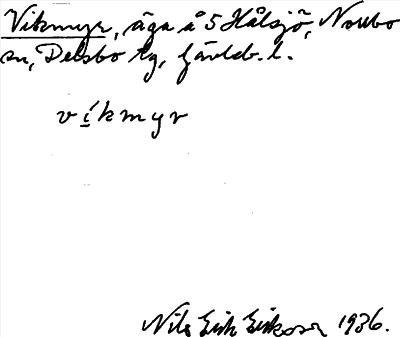 Vikmyr, äga å 5 Hålsjö, Norrbo
sn, Delsbo tg, Gävleb. l.
víkmyr
Nils Erik Eriksson 1936.